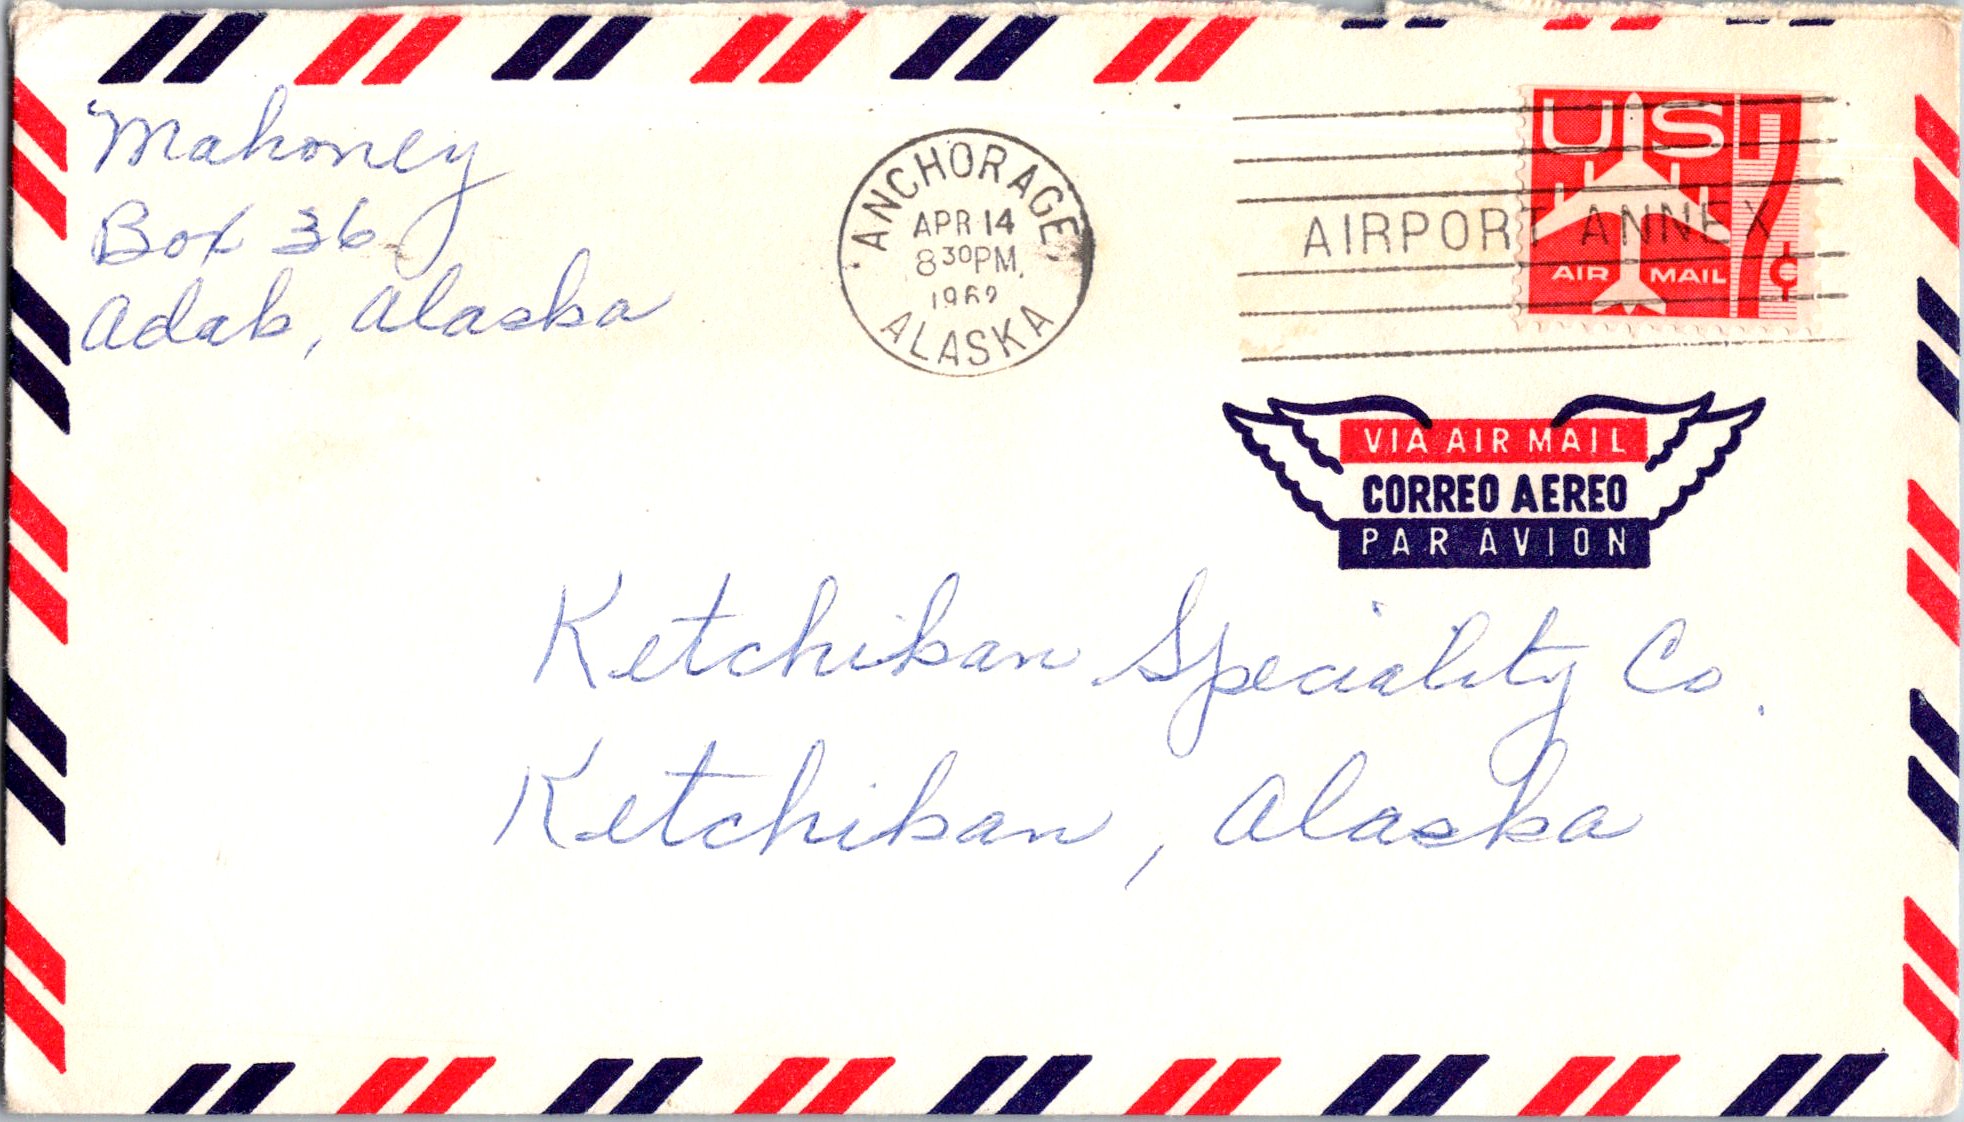 Mahoney
Box 36
Adak, Alaska
ANCHORAGE
APR 14
8 30 PM
1962
ALASKA
AIRPORT ANNEX
US 7¢
AIR MAIL
VIA AIR MAIL
CORREO AEREO
PAR AVION
Ketchikan Speciality Co.
Ketchikan, Alaska